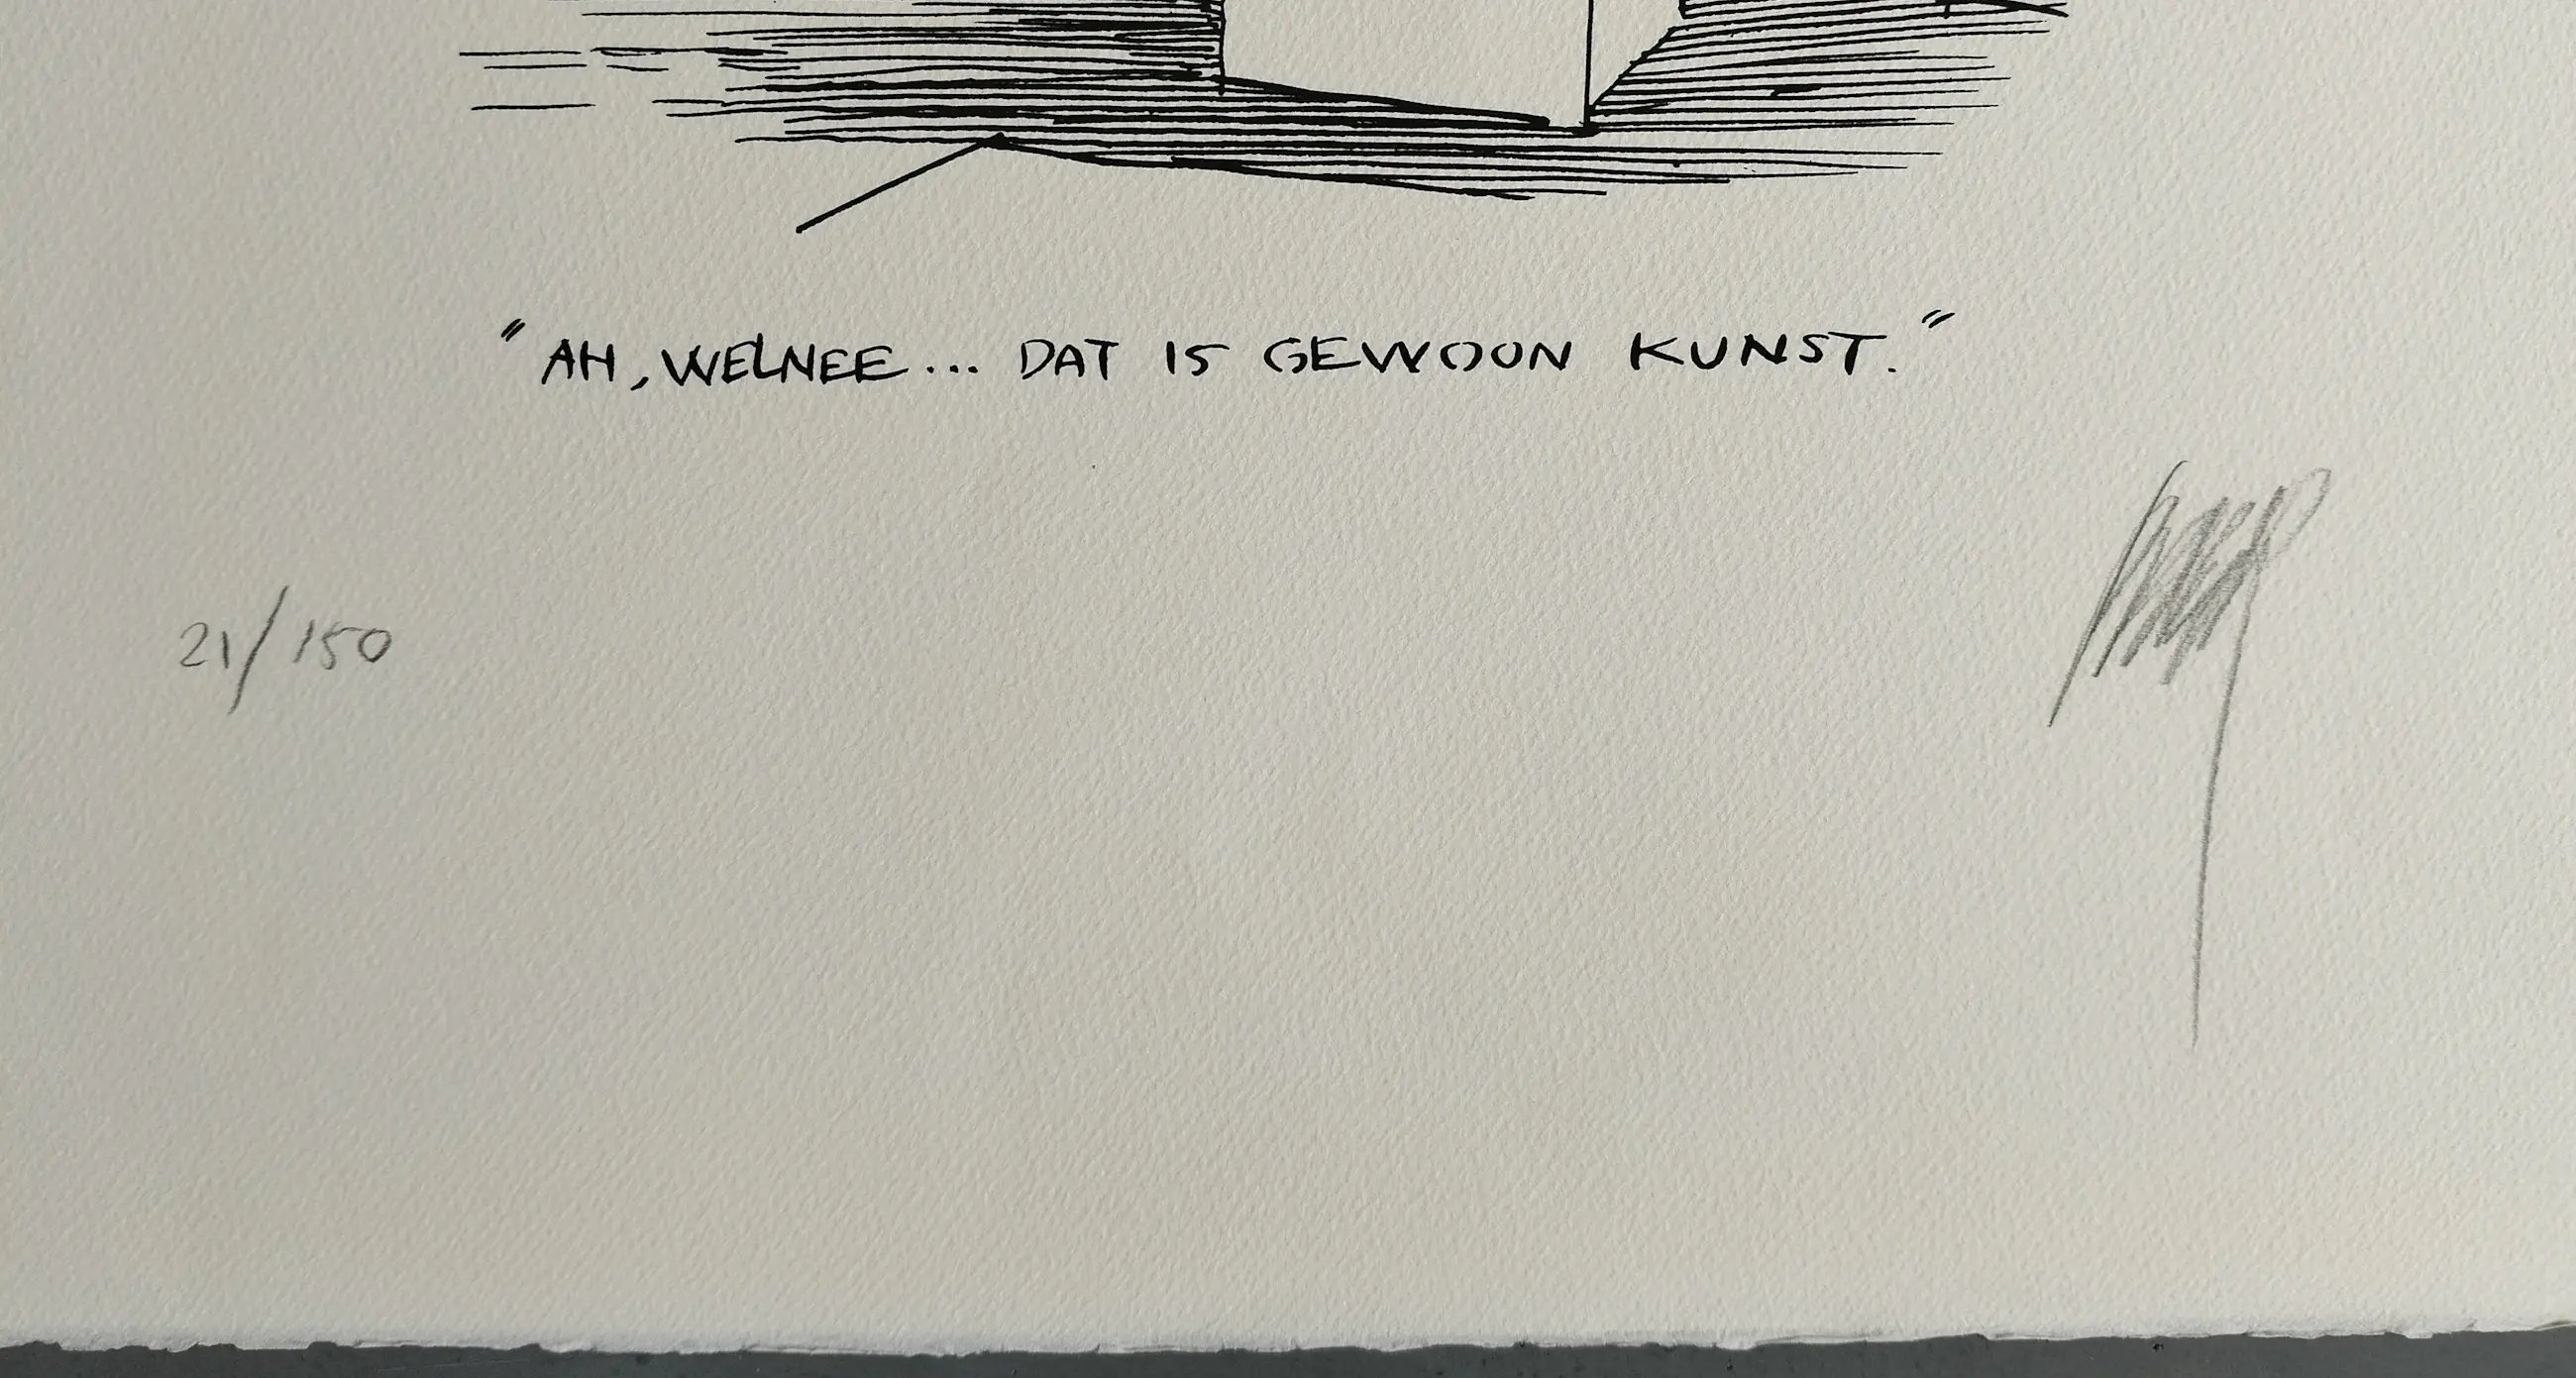 "AH, WELNEE... DAT IS GEWOON KUNST."
21/150